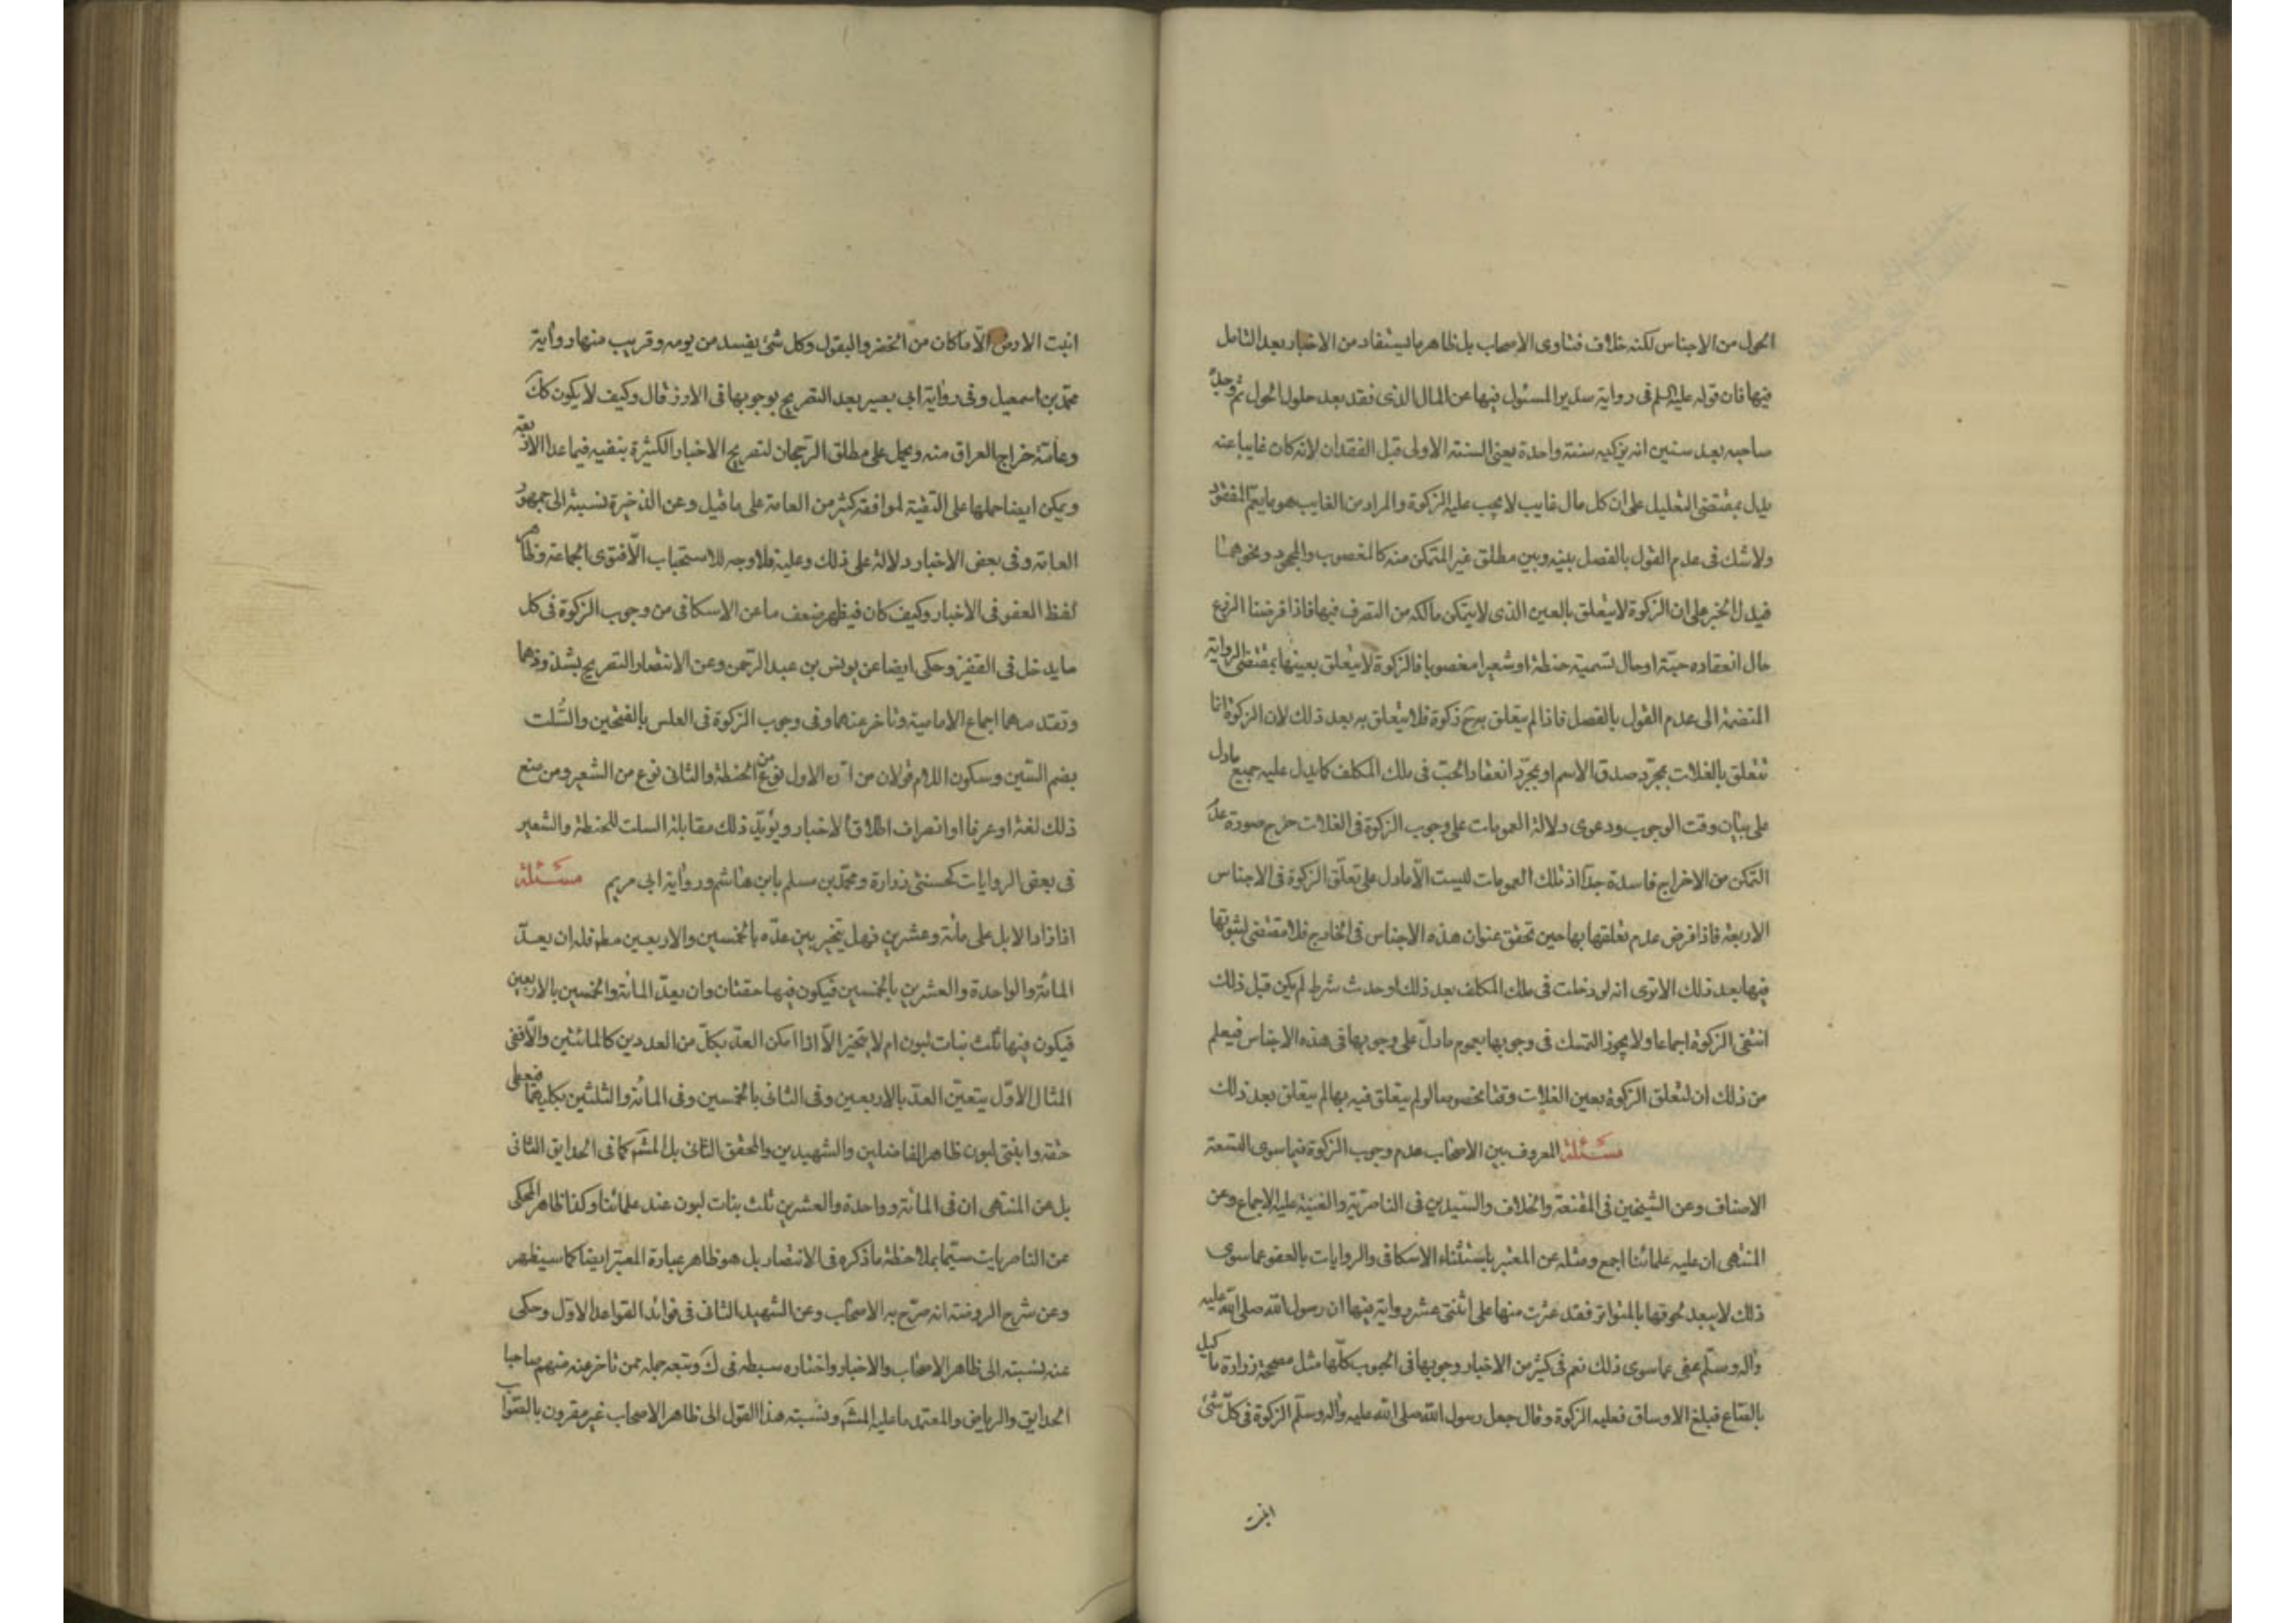 الحول من الاجناس لكنه خلاف فتاوى الاصحاب بل ظاهر ما يستفاد من الاخبار بعد التامل
فيها فان قوله عليه السلم فى رواية سدير المسئول فيها عن المال الذى فقد بعد حلول الحول ثم وجده
صاحبه بعد سنين انه يزكيه سنة واحدة يعنى السنة الاولى قبل الفقدان لانه كان غايبا عنه
يدل بمقتضى التعليل على ان كل مال غايب لا يجب عليه الزكوة والمراد من الغايب هو ما يعم المفقود
ولا شك فى عدم القول بالفصل بينه وبين مطلق غير المتمكن منه كالمغصوب والمجحود ونحوهما
فيدل الخبر على ان الزكوة لا يتعلق بالعين الذى لا يتمكن مالكه من التصرف فيها فاذا فرضنا الزرع
حال انعقاده حبّة او حال تسميته حنطة او شعيرا مغصوبا فالزكوة لا يتعلق بعينها بمقتضى الرواية
المنضمة الى عدم القول بالفصل فاذا لم يتعلق به ح زكوة فلا يتعلق به بعد ذلك لان الزكوة انما
تتعلق بالغلات بمجرّد صدق الاسم او بمجرّد انعقاد الحبّ فى ملك المكلف كما يدل عليه جميع ما دل
على بيان وقت الوجوب ودعوى دلالة العمومات على وجوب الزكوة فى الغلات خرج صورة عدم
التمكن من الاخراج فاسدة جدّا اذ تلك العمومات ليست الّا ما دل على تعلّق الزكوة فى الاجناس
الاربعة فاذا فرض عدم تعلقها بها حين تحقق عنوان هذه الاجناس فى الخارج فلا مقتضى لثبوتها
فيها بعد ذلك الا ترى انه لو دخلت فى ملك المكلف بعد ذلك او حدث شرط لم يكن قبل ذلك
انتفى الزكوة اجماعا ولا يجوز التمسك فى وجوبها بعموم ما دلّ على وجوبها فى هذه الاجناس فيعلم
من ذلك ان لتعلق الزكوة بعين الغلات وقتا مخصوصا لو لم يتعلق فيه بها لم يتعلق بعد ذلك
مسئلة المعروف بين الاصحاب عدم وجوب الزكوة فيما سوى التسعة
الاصناف وعن الشيخين فى المقنعة والخلاف والسّيدين فى الناصريّة والغنية عليه الاجماع وعن
المنتهى ان عليه علمائنا اجمع ومثله عن المعتبر باستثناء الاسكافى والروايات بالعفو عما سوى
ذلك لا يبعد لحوقها بالمتواتر فقد عثرت منها على اثنتى عشر رواية فيها ان رسول الله صلى الله عليه
وآله وسلّم عفى عما سوى ذلك نعم فى كثير من الاخبار وجوبها فى الحبوب كلّها مثل مصححة زرارة ما كيل
بالصّاع فبلغ الاوساق فعليه الزكوة وقال جعل رسول الله صلى الله عليه وآله وسلّم الزكوة فى كلّ شئ
انبتت
انبتت الارض الّا ما كان من الخضر والبقول وكل شئ يفسد من يومه وقريب منها رواية
محمّد بن اسمعيل وفى رواية ابى بصير بعد التصريح بوجوبها فى الارز قال وكيف لا يكون كك
وعامّة خراج العراق منه ويحمل على مطلق الرّجحان لتصريح الاخبار الكثيرة بنفيه فيما عدا الاربعة
ويمكن ايضا حملها على التّقية لموافقة كثير من العامة على ما قيل وعن الذخيرة نسبته الى جمهور
العامة وفى بعض الاخبار دلالة على ذلك وعليه فلا وجه للاستحباب الّا فتوى الجماعة وظاهر
لفظ العفو فى الاخبار وكيف كان فيظهر ضعف ما عن الاسكافى من وجوب الزكوة فى كل
ما يدخل فى القفيز وحكى ايضا عن يونس بن عبد الرّحمن وعن الانتصار التصريح بشذوذهما
وتقدمهما اجماع الامامية وتاخر عنهما وفى وجوب الزكوة فى العلس بالفتحين والسُّلت
بضم السّين وسكون اللام قولان من انّ الاول نوع من الحنطة والثانى نوع من الشعير ومن منع
ذلك لغة او عرفا او انصراف اطلاق الاخبار ويؤيّد ذلك مقابلة السلت للحنطة والشعير
فى بعض الروايات كحسنتى زرارة ومحمّد بن مسلم بابن هاشم ورواية ابى مريم مسئلة
اذا زاد الابل على مائة وعشرين فهل يتخير بين عدّه بالخمسين والاربعين مطم فله ان يعدّ
المائة والواحدة والعشرين بالخمسين فيكون فيها حقتان وان يعدّ المائة والخمسين بالاربعين
فيكون فيها ثلث بنات لبون ام لا يتخيّر الّا اذا امكن العدّ بكلّ من العددين كالمائتين والّا ففى
المثال الاوّل يتعيّن العدّ بالاربعين وفى الثانى بالخمسين وفى المائة والثلثين بكليهما فيعطى
حقة وابنتى لبون ظاهر الفاضلين والشهيدين والمحقق الثانى بل المشهَ كما فى الحدايق الثانى
بل عن المنتهى ان فى المائة وواحدة والعشرين ثلث بنات لبون عند علمائنا وكذا ظاهر المحكى
عن الناصريات سيّما بملاحظة ما ذكره فى الانتصار بل هو ظاهر عبارة المعتبر ايضا كما سيظهر
وعن شرح الروضة انه صرّح به الاصحاب وعن الشهيد الثانى فى فوائد القواعد الاوّل وحكى
عنه نسبته الى ظاهر الاصحاب والاخبار واختاره سبطه فى ك وتبعه جملة ممن تاخر عنه منهم صاحبا
الحدايق والرياض والمعتمد ما عليه المشهَ ونسبته هذا القول الى ظاهر الاصحاب غير مقرون بالصّواب